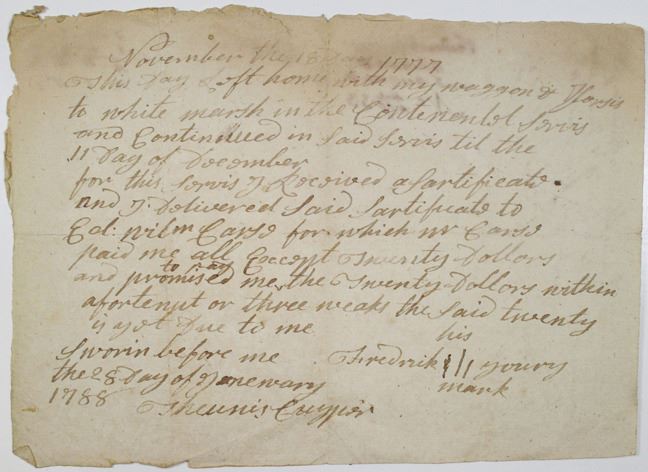 November the 18 Day 1777
This Day I Left home with my waggon & Horsis
to white marsh in the Continentol Servis
and Continued in Said Servis til the
11 Day of December
for this Servis I Received a Sartificate
and I Delivered Said Sartificate to
Col: Carse for which mr Carse
paid me all Except Twenty Dollors
and promised to pay me the Twenty Dollors within
a fortenyt or three weaks the Said twenty
is yet Due to me
his
Sworin before me Fredrik youry
the 28 Day of Jenewary mark
1788 Theunis Cuyper